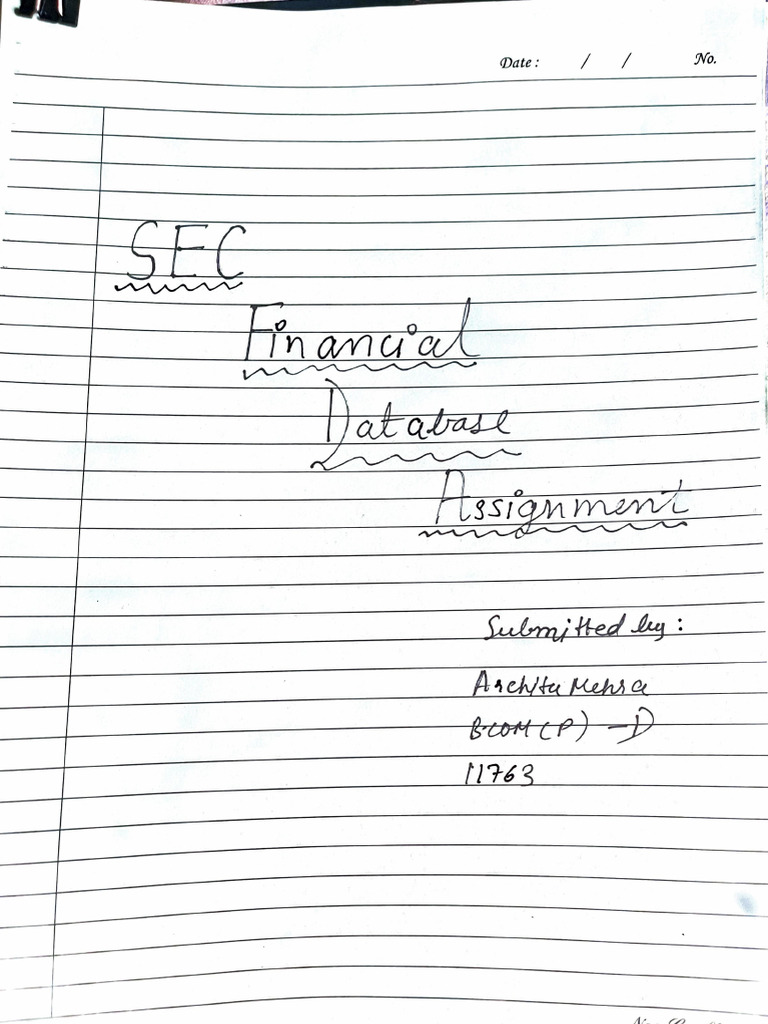 Date : / / No.
SEC
Financial
Database
Assignment
Submitted by :
Archita Mehra
B.COM (P) - D
11763